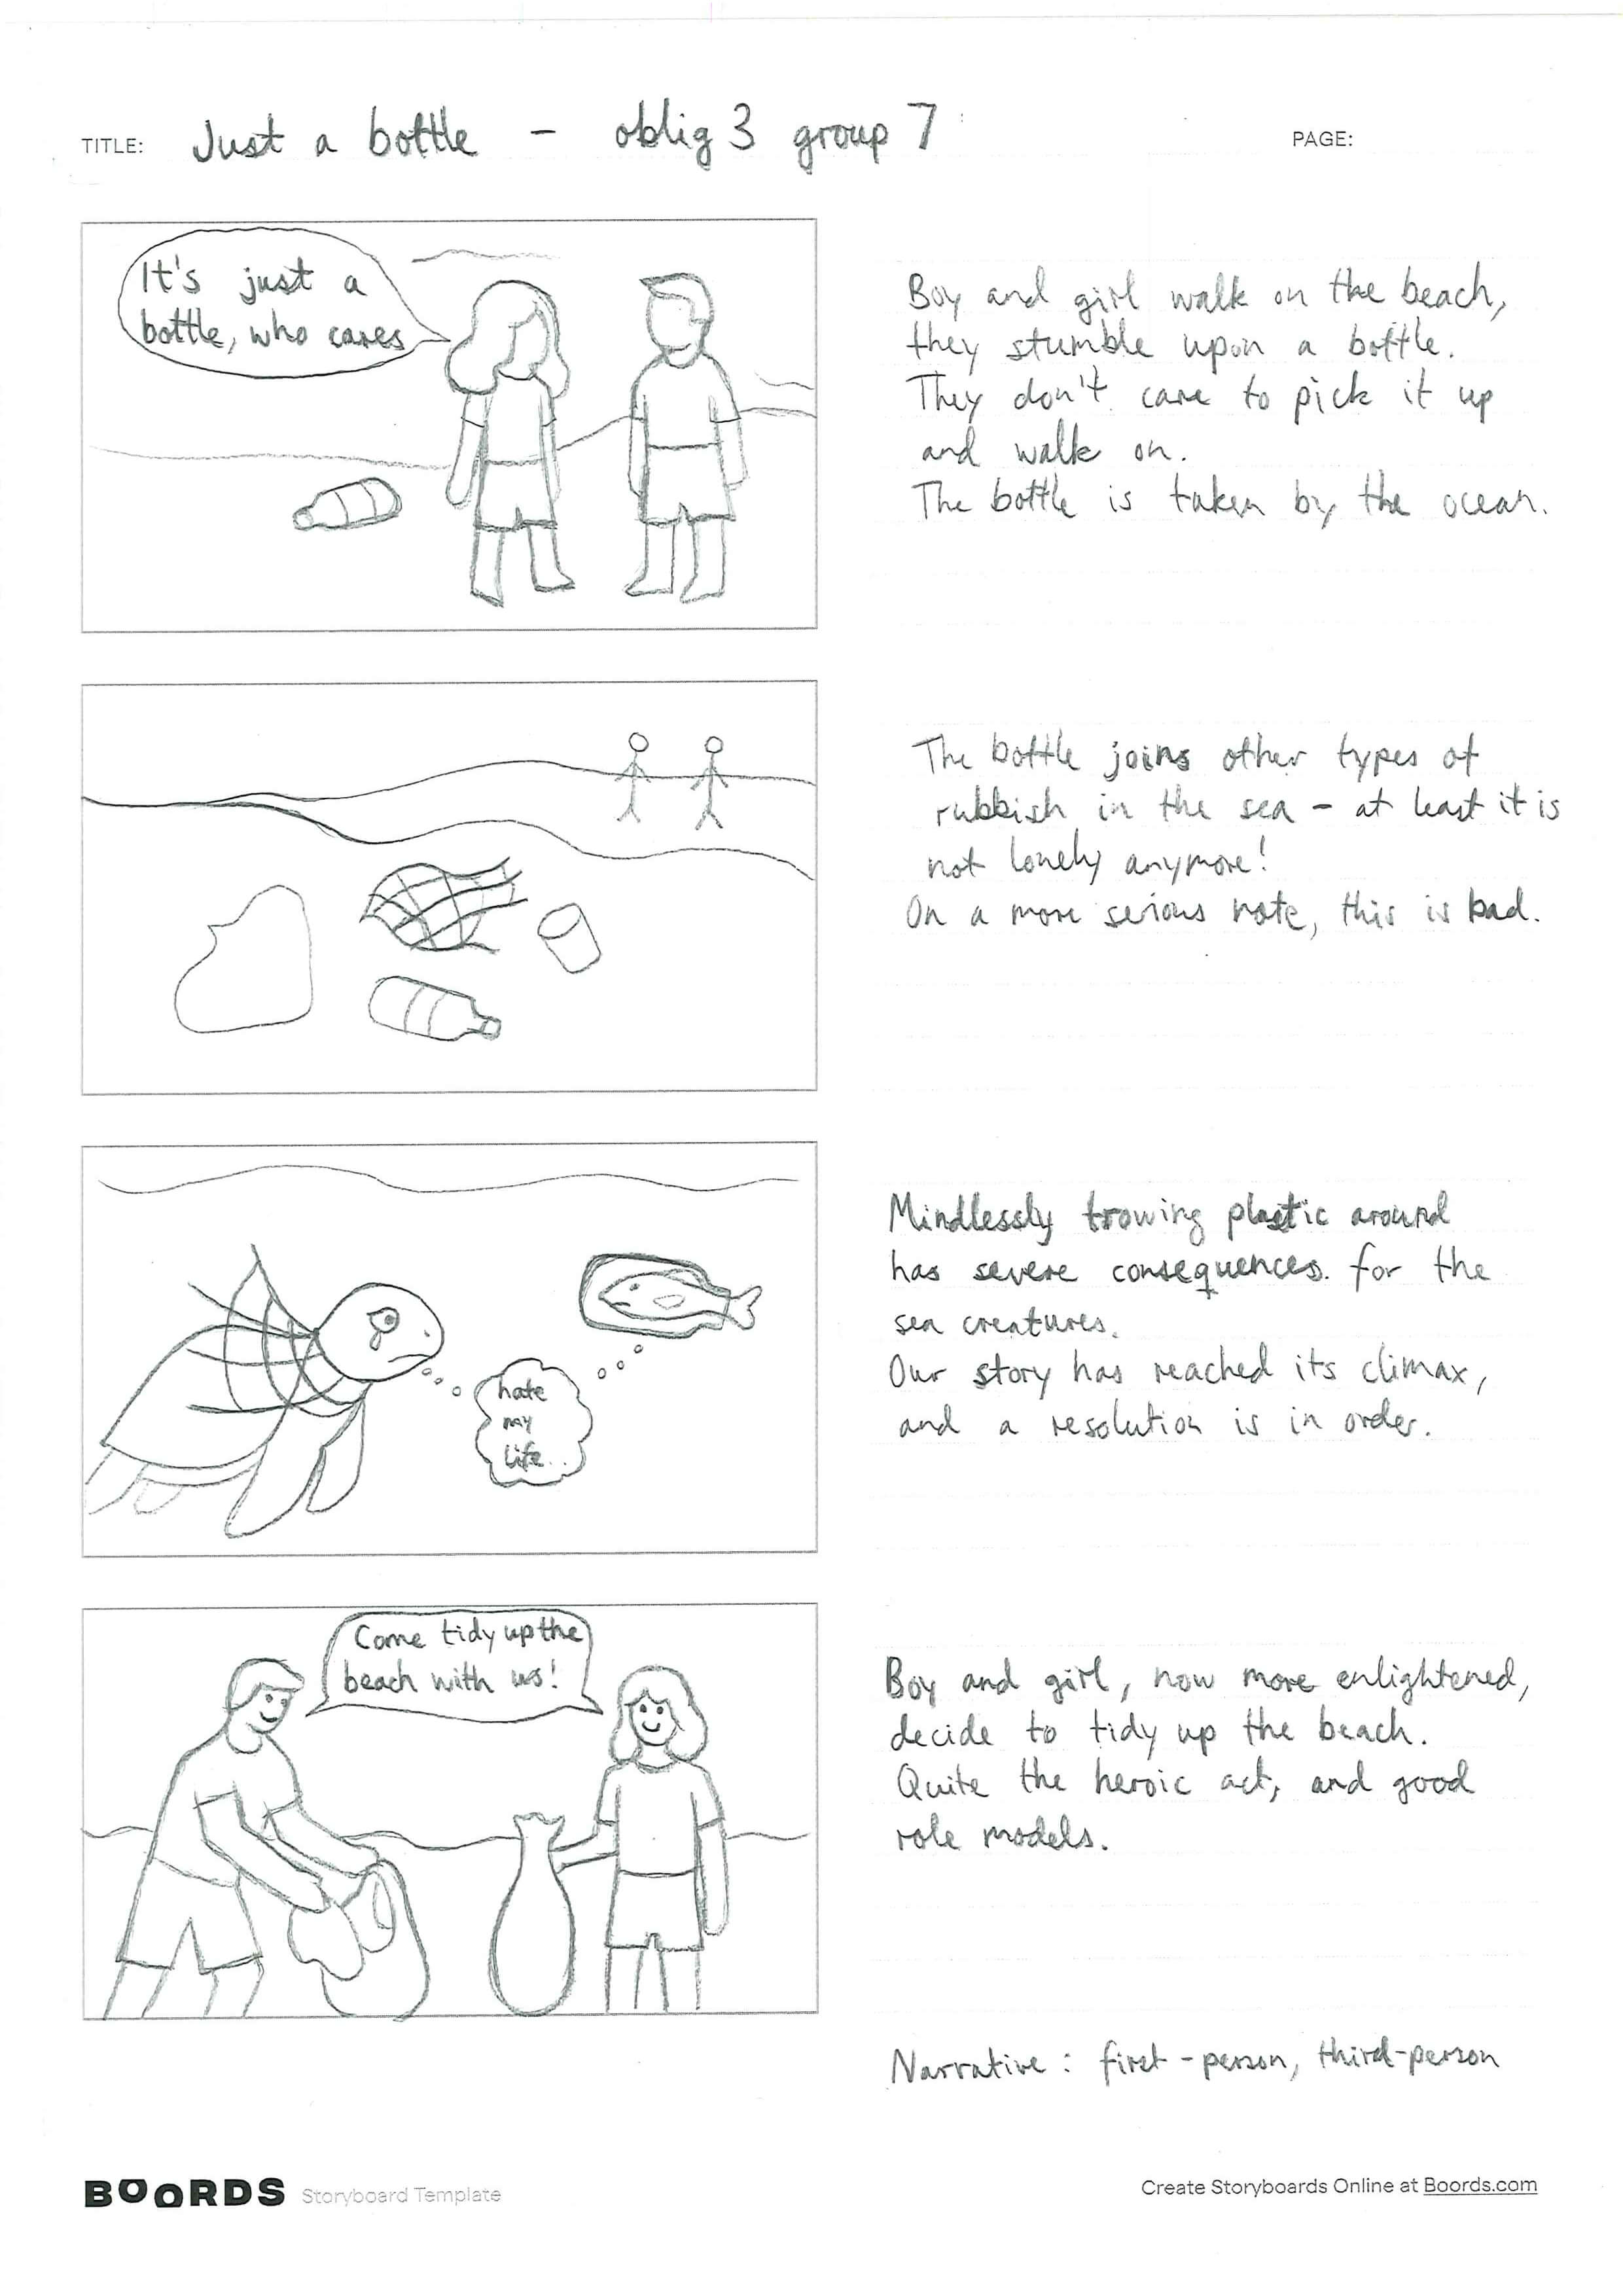 TITLE: Just a bottle - oblig 3 group 7
PAGE:
It's just a
bottle, who cares
Boy and girl walk on the beach,
they stumble upon a bottle.
They don't care to pick it up
and walk on.
The bottle is taken by the ocean.
The bottle joins other types of
rubbish in the sea - at least it is
not lonely anymore!
On a more serious note, this is bad.
hate
my
life..
Mindlessly trowing plastic around
has severe consequences. for the
sea creatures.
Our story has reached its climax,
and a resolution is in order.
Come tidy up the
beach with us!
Boy and girl, now more enlightened,
decide to tidy up the beach.
Quite the heroic act, and good
role models.
Narrative: first-person, third-person
BOORDS Storyboard Template
Create Storyboards Online at Boords.com